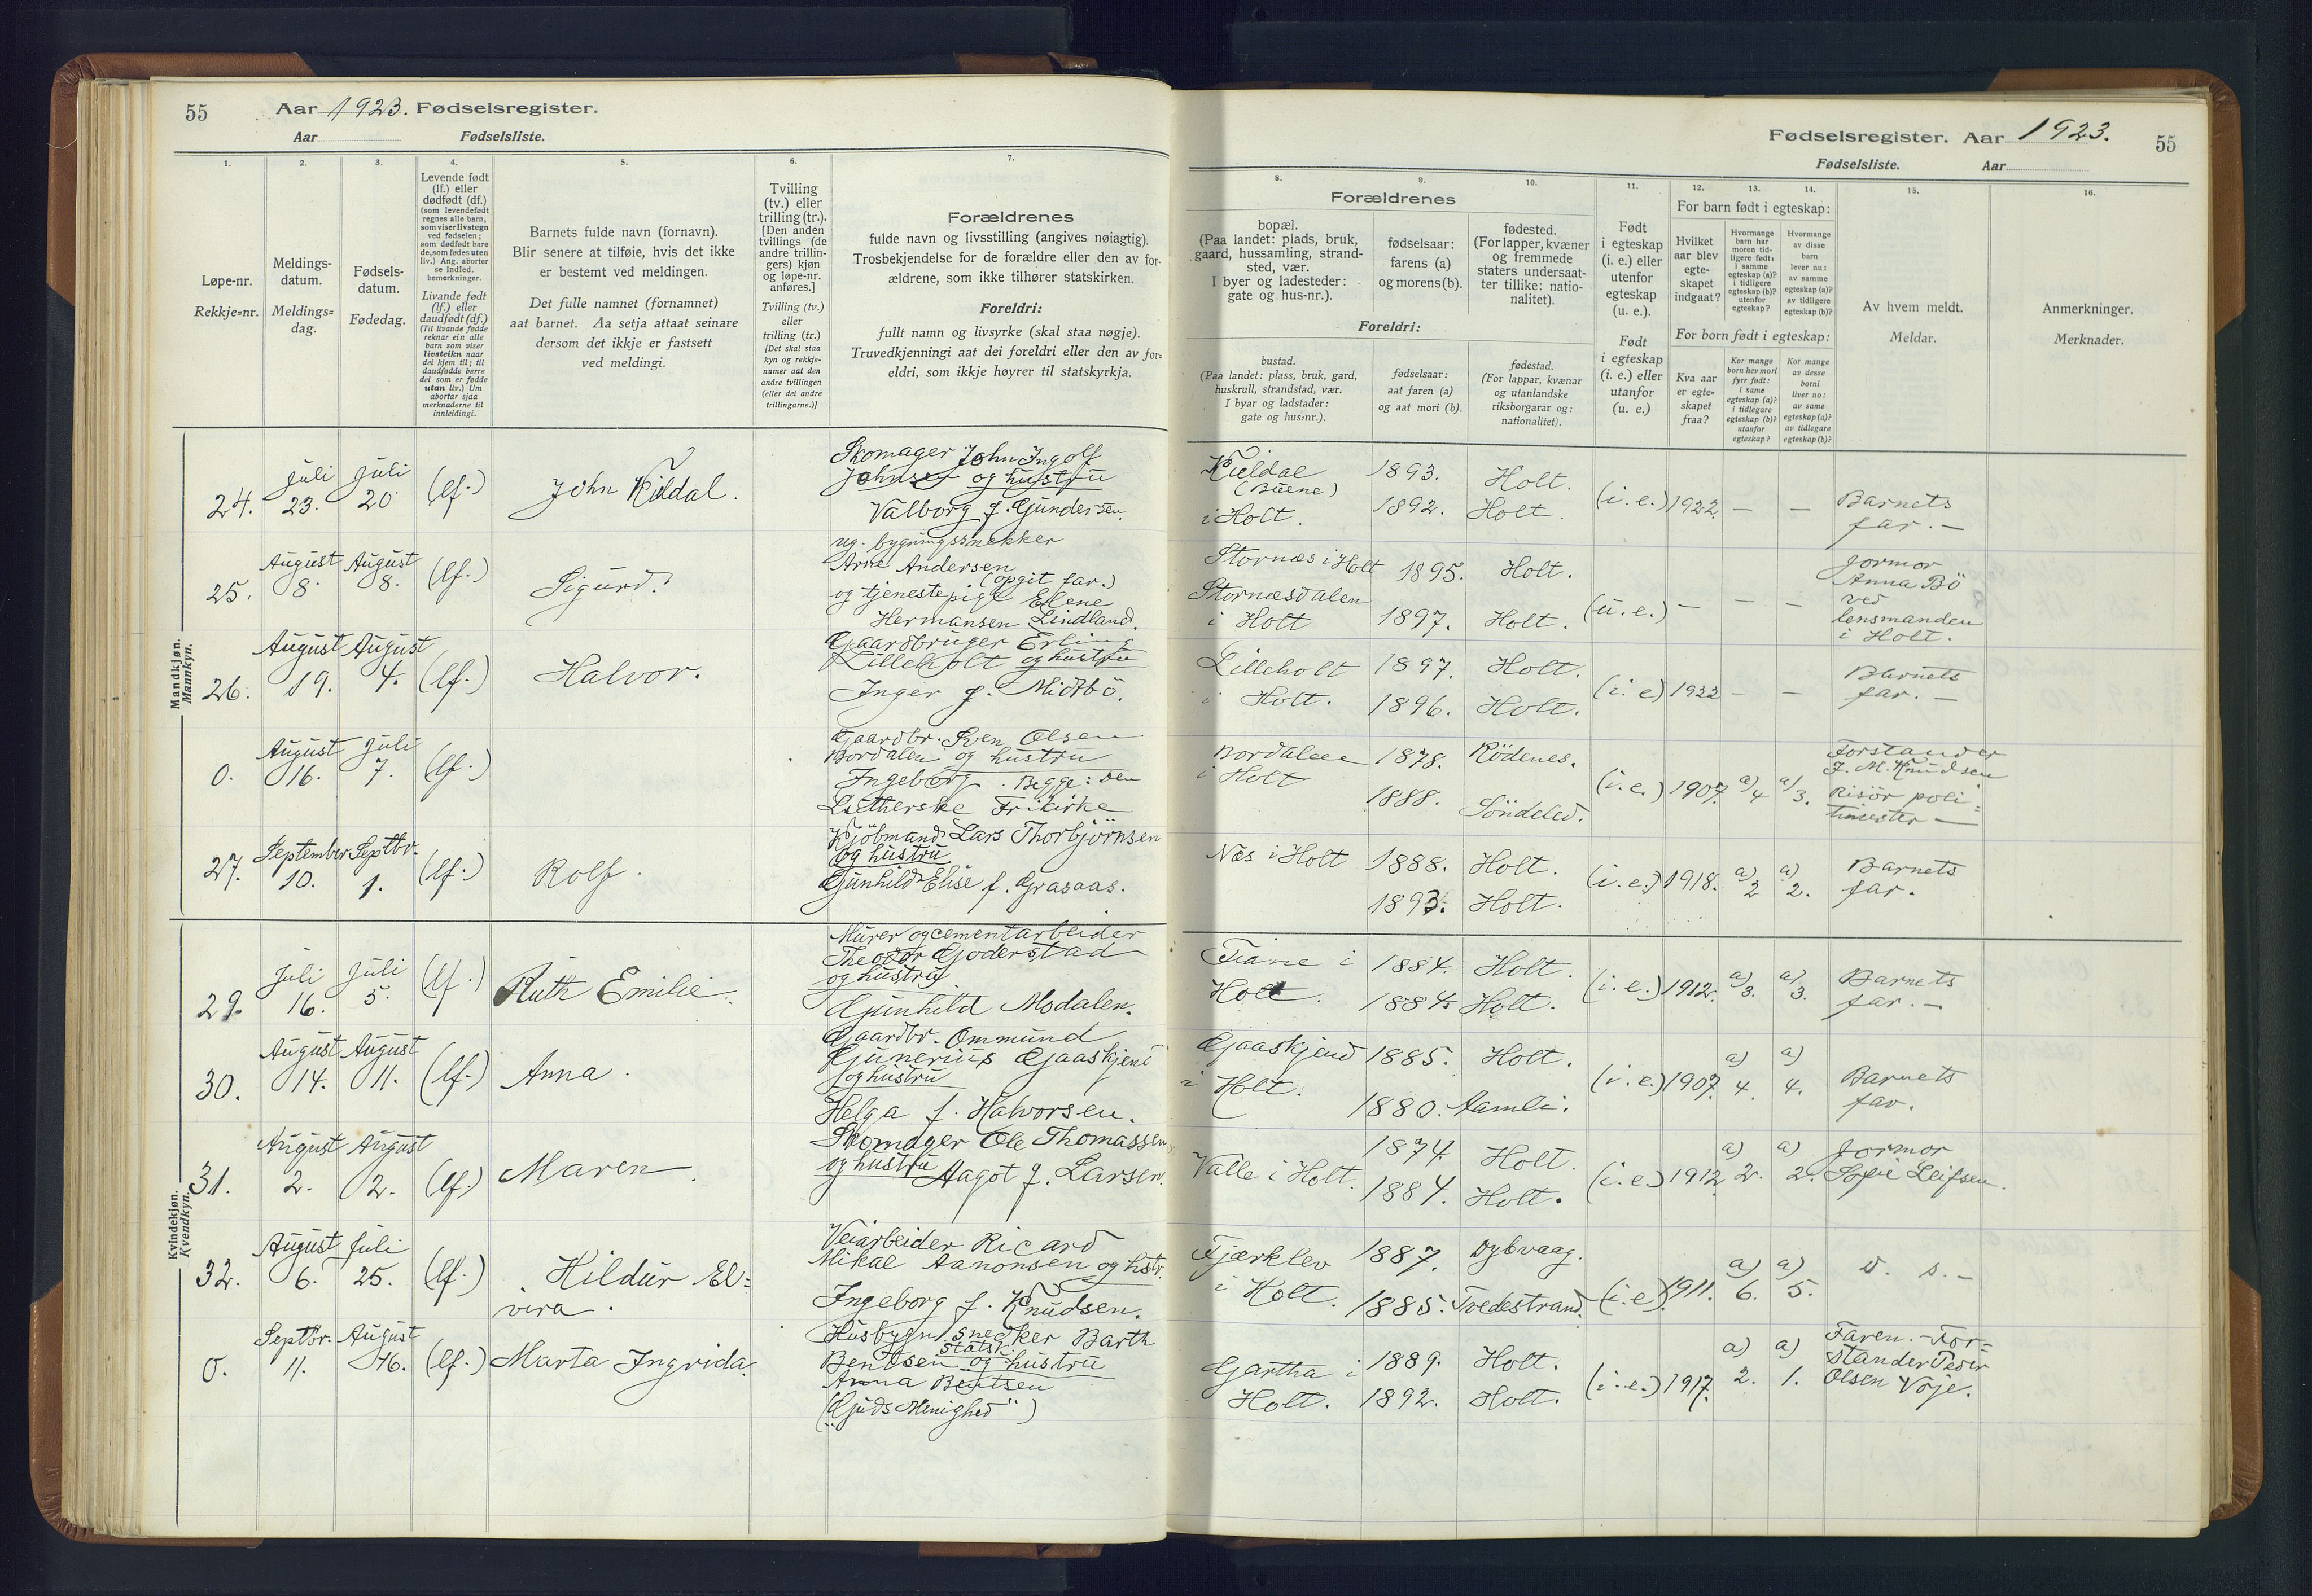 55 Aar 1923. Fødselsregister.
Aar Fødselsliste.
1. 2. 3. 4. 5. 6. 7.
Løpe-nr.
Rekkje=nr.
Meldings-
datum.
Meldings=
dag.
Fødsels-
datum.
Fødedag.
Levende født
(lf.) eller
dødfødt (df.)
(som levendefødt
regnes alle barn,
som viser livstegn
ved fødselen;
som dødfødt bare
de, som fødes uten
liv.) Ang. aborter
se indled.
bemerkninger.
Livande født
(lf.) eller
daudfødt (df.)
(Til livande fødde
reknar ein alle
barn som viser
livsteikn naar
dei kjem til; til
daudfødde berre
dei som er fødde
utan liv.) Um
abortar sjaa
merknaderne til
innleidingi.
Barnets fulde navn (fornavn).
Blir senere at tilføie, hvis det ikke
er bestemt ved meldingen.
Det fulle namnet (fornamnet)
aat barnet. Aa setja attaat seinare
dersom det ikkje er fastsett
ved meldingi.
Tvilling
(tv.) eller
trilling (tr.).
[Den anden
tvillings (de
andre trillin-
gers) kjøn
og løpe-nr.
anføres.]
Tvilling (tv.)
eller
trilling (tr.)
[Det skal staa
kyn og rekkje-
numer aat den
andre tvillingen
(eller dei andre
trillingarne.)]
Forældrenes
fulde navn og livsstilling (angives nøiagtig).
Trosbekjendelse for de forældre eller den av for-
ældrene, som ikke tilhører statskirken.
Foreldri:
fullt namn og livsyrke (skal staa nøgje).
Truvedkjenningi aat dei foreldri eller den av for=
eldri, som ikkje høyrer til statskyrkja.
Mandkjøn.
Mannkyn.
24. Juli 23. Juli 20 (lf.) John Kildal.
Skomager John Ingolf
Johnsen og hustru
Valborg f. Gundersen.
25. August 8. August 8. (lf.) Sigurd.
ug. bygningssnekker
Arne Andersen
(opgit far.)
og tjenestepige Elene
Hermansen Lindland.
26. August 19. August 4. (lf.) Halvor.
Gaardbruger Erling
Lilleholt og hustru
Inger f. Midtbö.
0. August 16. Juli 7. (lf.)
Gaardbr. Sven Olsen
Bordalen og hustru
Ingeborg. Begge: den
Lutherske Frikirke
27. September 10. Septbr. 1. (lf.) Rolf.
Kjöbmand Lars Thorbjörnsen
og hustru
Gunhild Elise f. Grasaas.
Kvindekjøn.
Kvendkyn.
29. Juli 16. Juli 5. (lf.) Ruth Emilie.
Murer og cementarbeider
Theodor Goderstad
og hustru
Gunhild Modalen.
30. August 14. August 11. (lf.) Anna.
Gaardbr. Ommund
Gunerius Gaaskjend
og hustru
Helga f. Halvorsen.
31. August 2. August 2. (lf.) Maren.
Skomager Ole Thomassen
og hustru Aagot f. Larsen.
32. August 6. Juli 25. (lf.) Hildur El=
vira.
Veiarbeider Ricard
Mikal Aanonsen og hstr.
Ingeborg f. Knudsen.
0. Septbr. 11. August 16. (lf.) Marta Ingrida.
Husbygn. snedker Barth
Bendsen statsk. og hustru
Anna Bentsen
("Guds Menighed")
Fødselsregister. Aar 1923. 55
Fødselsliste. Aar
8. 9. 10. 11. 12. 13. 14. 15. 16.
Forældrenes
bopæl.
(Paa landet: plads, bruk,
gaard, hussamling, strand-
sted, vær.
I byer og ladesteder:
gate og hus-nr.).
fødselsaar:
farens (a)
og morens (b).
fødested.
(For lapper, kvæner
og fremmede
staters undersaat-
ter tillike: natio-
nalitet).
Foreldri:
bustad.
(Paa landet: plass, bruk, gard,
huskrull, strandstad, vær.
I byar og ladstader:
gate og hus=nr.).
fødselsaar:
aat faren (a)
og aat mori (b).
fødestad.
(For lappar, kvænar
og utanlandske
riksborgarar og:
nationalitet).
Født
i egteskap
(i. e.) eller
utenfor
egteskap
(u. e.).
Født
i egteskap
(i. e.) eller
utanfor
(u. e.)
For barn født i egteskap:
Hvilket
aar blev
egte-
skapet
indgaat?
Hvormange
barn har
moren tid-
ligere født:
i samme
egteskap (a)?
i tidligere
egteskap (b)?
utenfor
egteskap?
Hvormange
av disse
barn
lever nu:
av samme
egteskap (a)?
av tidligere
egteskap (b)?
For born født i egteskap:
Kva aar
er egte=
skapet
fraa?
Kor mange
born hev mori
fyrr født:
i same
egteskap (a)?
i tidlegare
egteskap (b)?
utanfor
egteskap?
Kor mange
av desse
borni
liver no:
av same
egteskap (a)?
av tidlegare
egteskap (b)?
Av hvem meldt.
Meldar.
Anmerkninger.
Merknader.
Kildal
(Buene)
i Holt. 1893. Holt.
1892. Holt. (i. e.) 1922. — — Barnets
far. —
Stornæs i Holt 1895. Holt.
Stornæsdalen
i Holt 1897. Holt. (u. e.) — — — Jormor
Anna Bö
ved
lensmanden
i Holt.
Lilleholt 1897. Holt.
i Holt. 1896. Holt. (i. e) 1922 — — Barnets
far. —
Bordalen 1878. Rödenes.
i Holt 1888. Söndeled. (i. e.) 1907. a) 4 a) 3. Forstander
J. M. Knudsen
Risör poli=
timester —
Næs i Holt 1888. Holt.
1893. Holt. (i. e.) 1918. a) 2 a) 2. Barnets
far.
Fiane i 1884. Holt.
Holt. 1884. Holt. (i. e.) 1912. a) 3. a) 3. Barnets
far. —
Gaaskjend 1885. Holt.
i Holt. 1880. Aamli. (i. e.) 1907. a) 4. a) 4. Barnets
far.
Valle i Holt. 1874. Holt.
1884. Holt. (i. e.) 1912 a) 2. a) 2. Jormor
Sofie Leifsen.
Fjærklev 1887. Dybvaag.
i Holt. 1885. Tvedestrand. (i. e.) 1911. a) 6. a) 5. d. s. —
Gartha i 1889. Holt.
Holt. 1892. Holt. (i. e.) 1917. a) 2. a) 1. Faren. - For=
stander Peder
Olsen Voje.